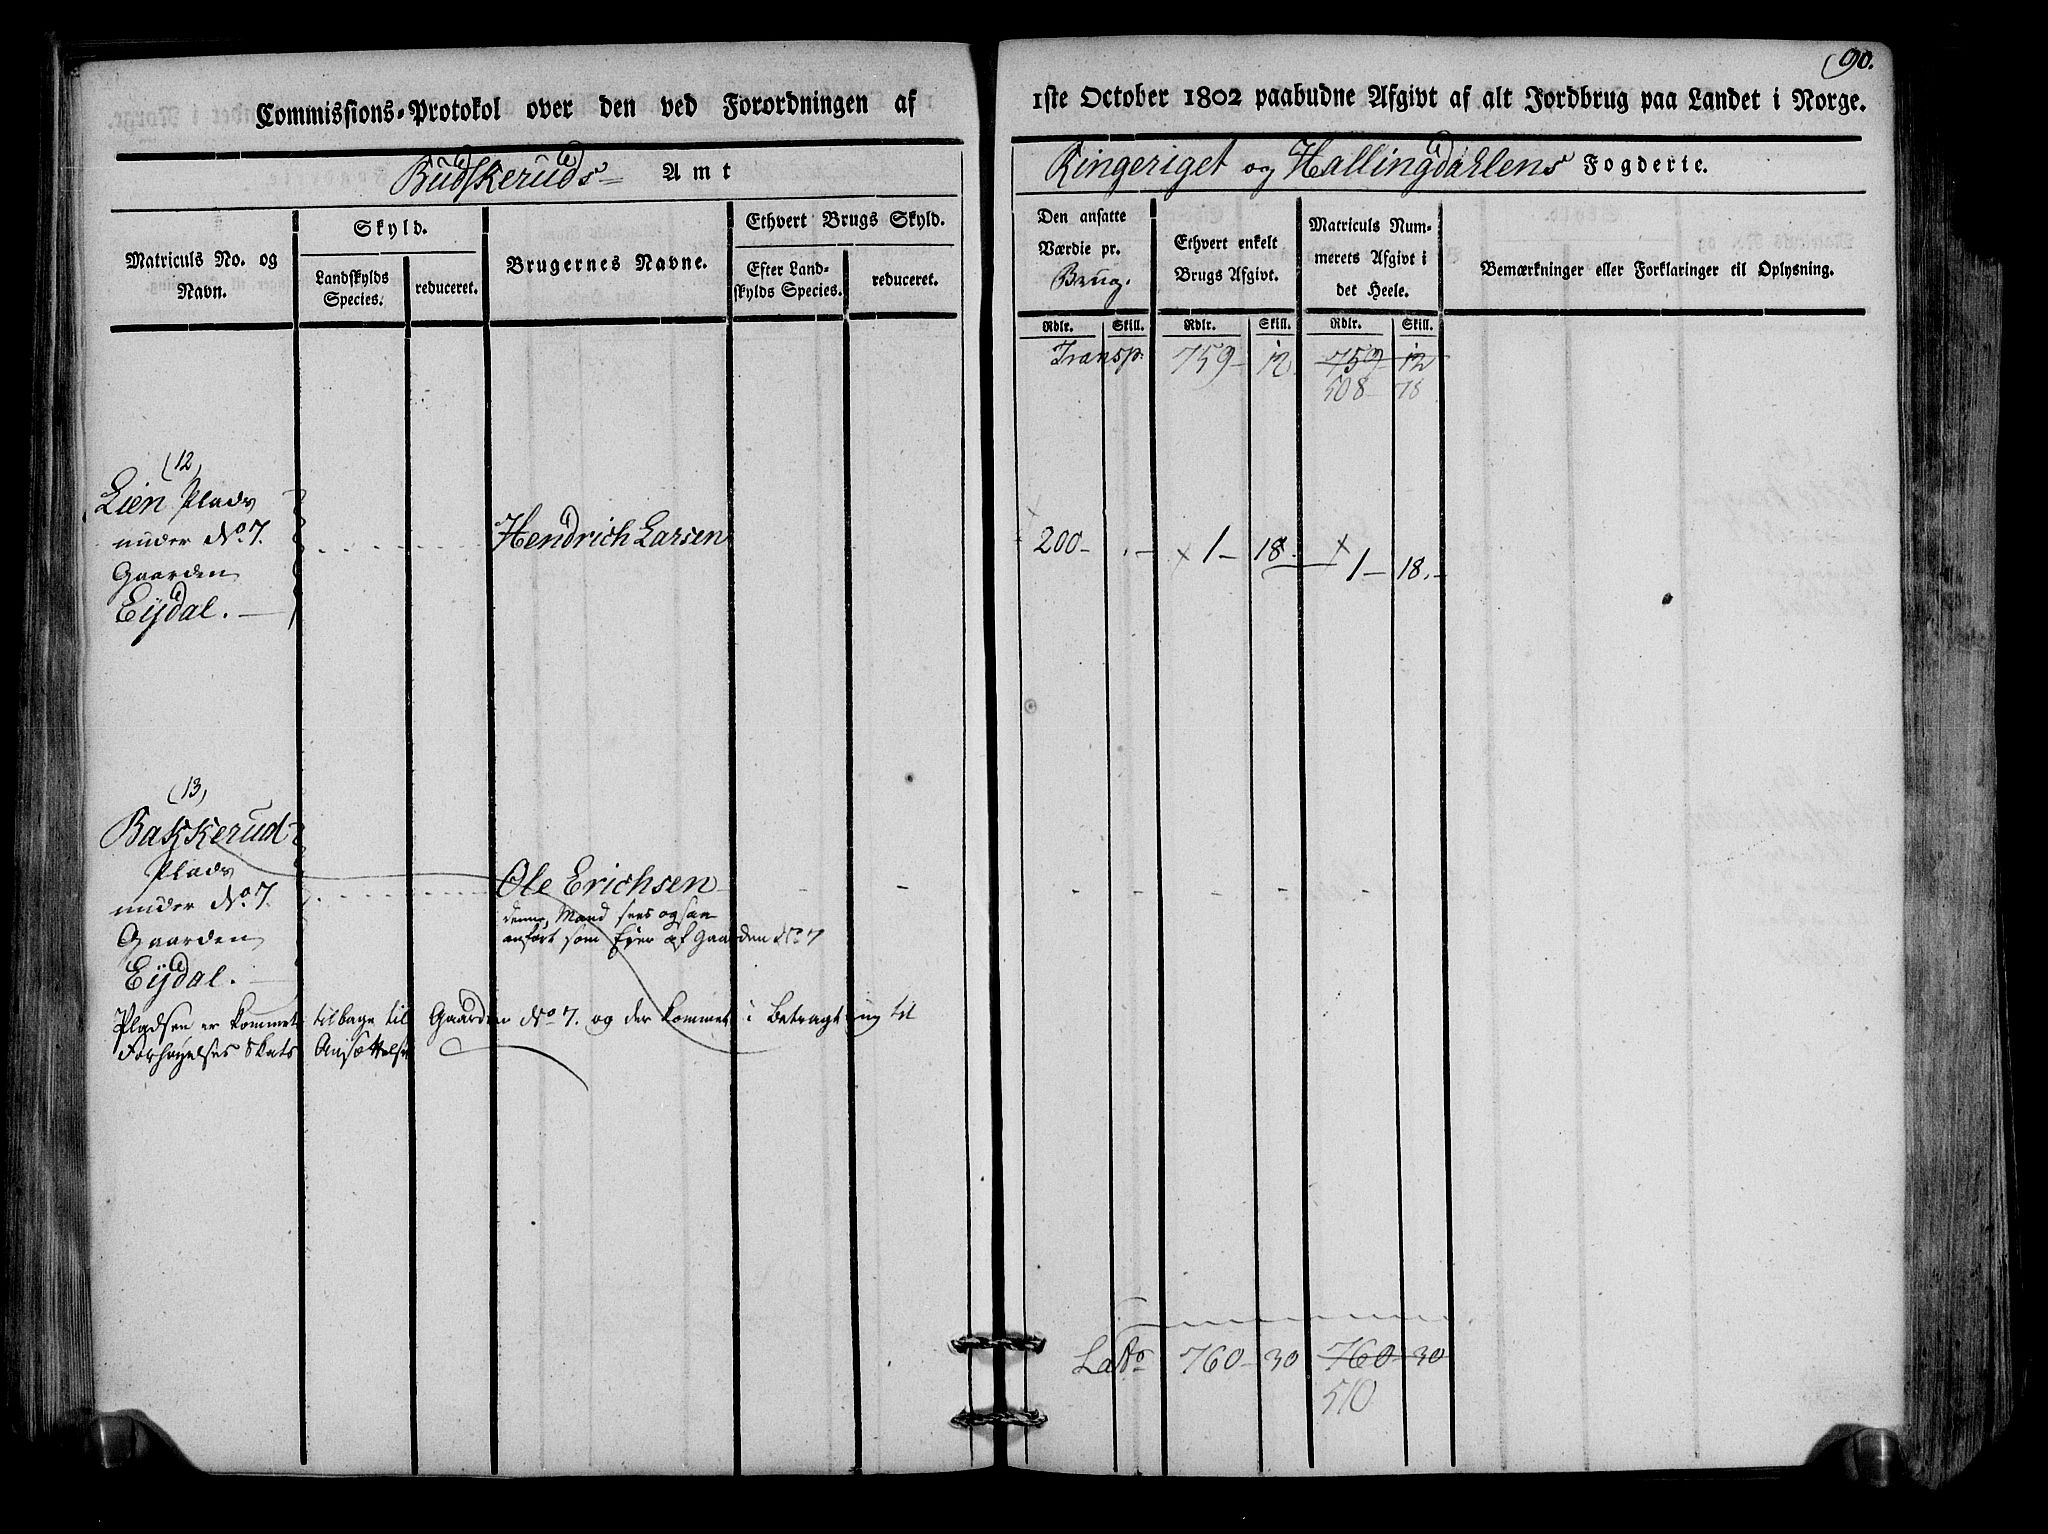 (90.
Commissions-Protokol over den ved Forordningen af 1ste October 1802 paabudne Afgivt af alt Jordbrug paa Landet i Norge.
Budskeruds Amt
Ringeriget og Hallingdahlens Fogderie.
Matriculs No. og Navn.
Skyld.
Landskylds Species.
reduceret.
Brugernes Navne.
Ethvert Brugs Skyld.
Efter Landskylds Species.
reduceret.
Den ansatte Værdie pr. Brug.
Ethvert enkelt Brugs Afgivt.
Matriculs Nummerets Afgivt i det Heele.
Bemærkninger eller Forklaringer til Oplysning.
Rdlr. Skill. Rdlr. Skill. Rdlr. Skill.
Transp. 759 - 12 759 - 12
508 - 78
(12)
Lien Plads
under No. 7.
Gaarden
Eydal. -
Hendrich Larsen
200 - . - x 1 - 18 - x 1 - 18. -
(13)
Bakkerud
Plads
under No. 7.
Gaarden
Eydal. -
Ole Erichsen - - - - - - - -
denne Mand sees ogsaa
anført som Ejer af Gaarden No 7
Pladsen er kommet tilbage til Gaarden No 7. og der kommet i Betragtning til
Forhøyelses Skats Ansættelse
Latr 760 - 30 760 - 30
510